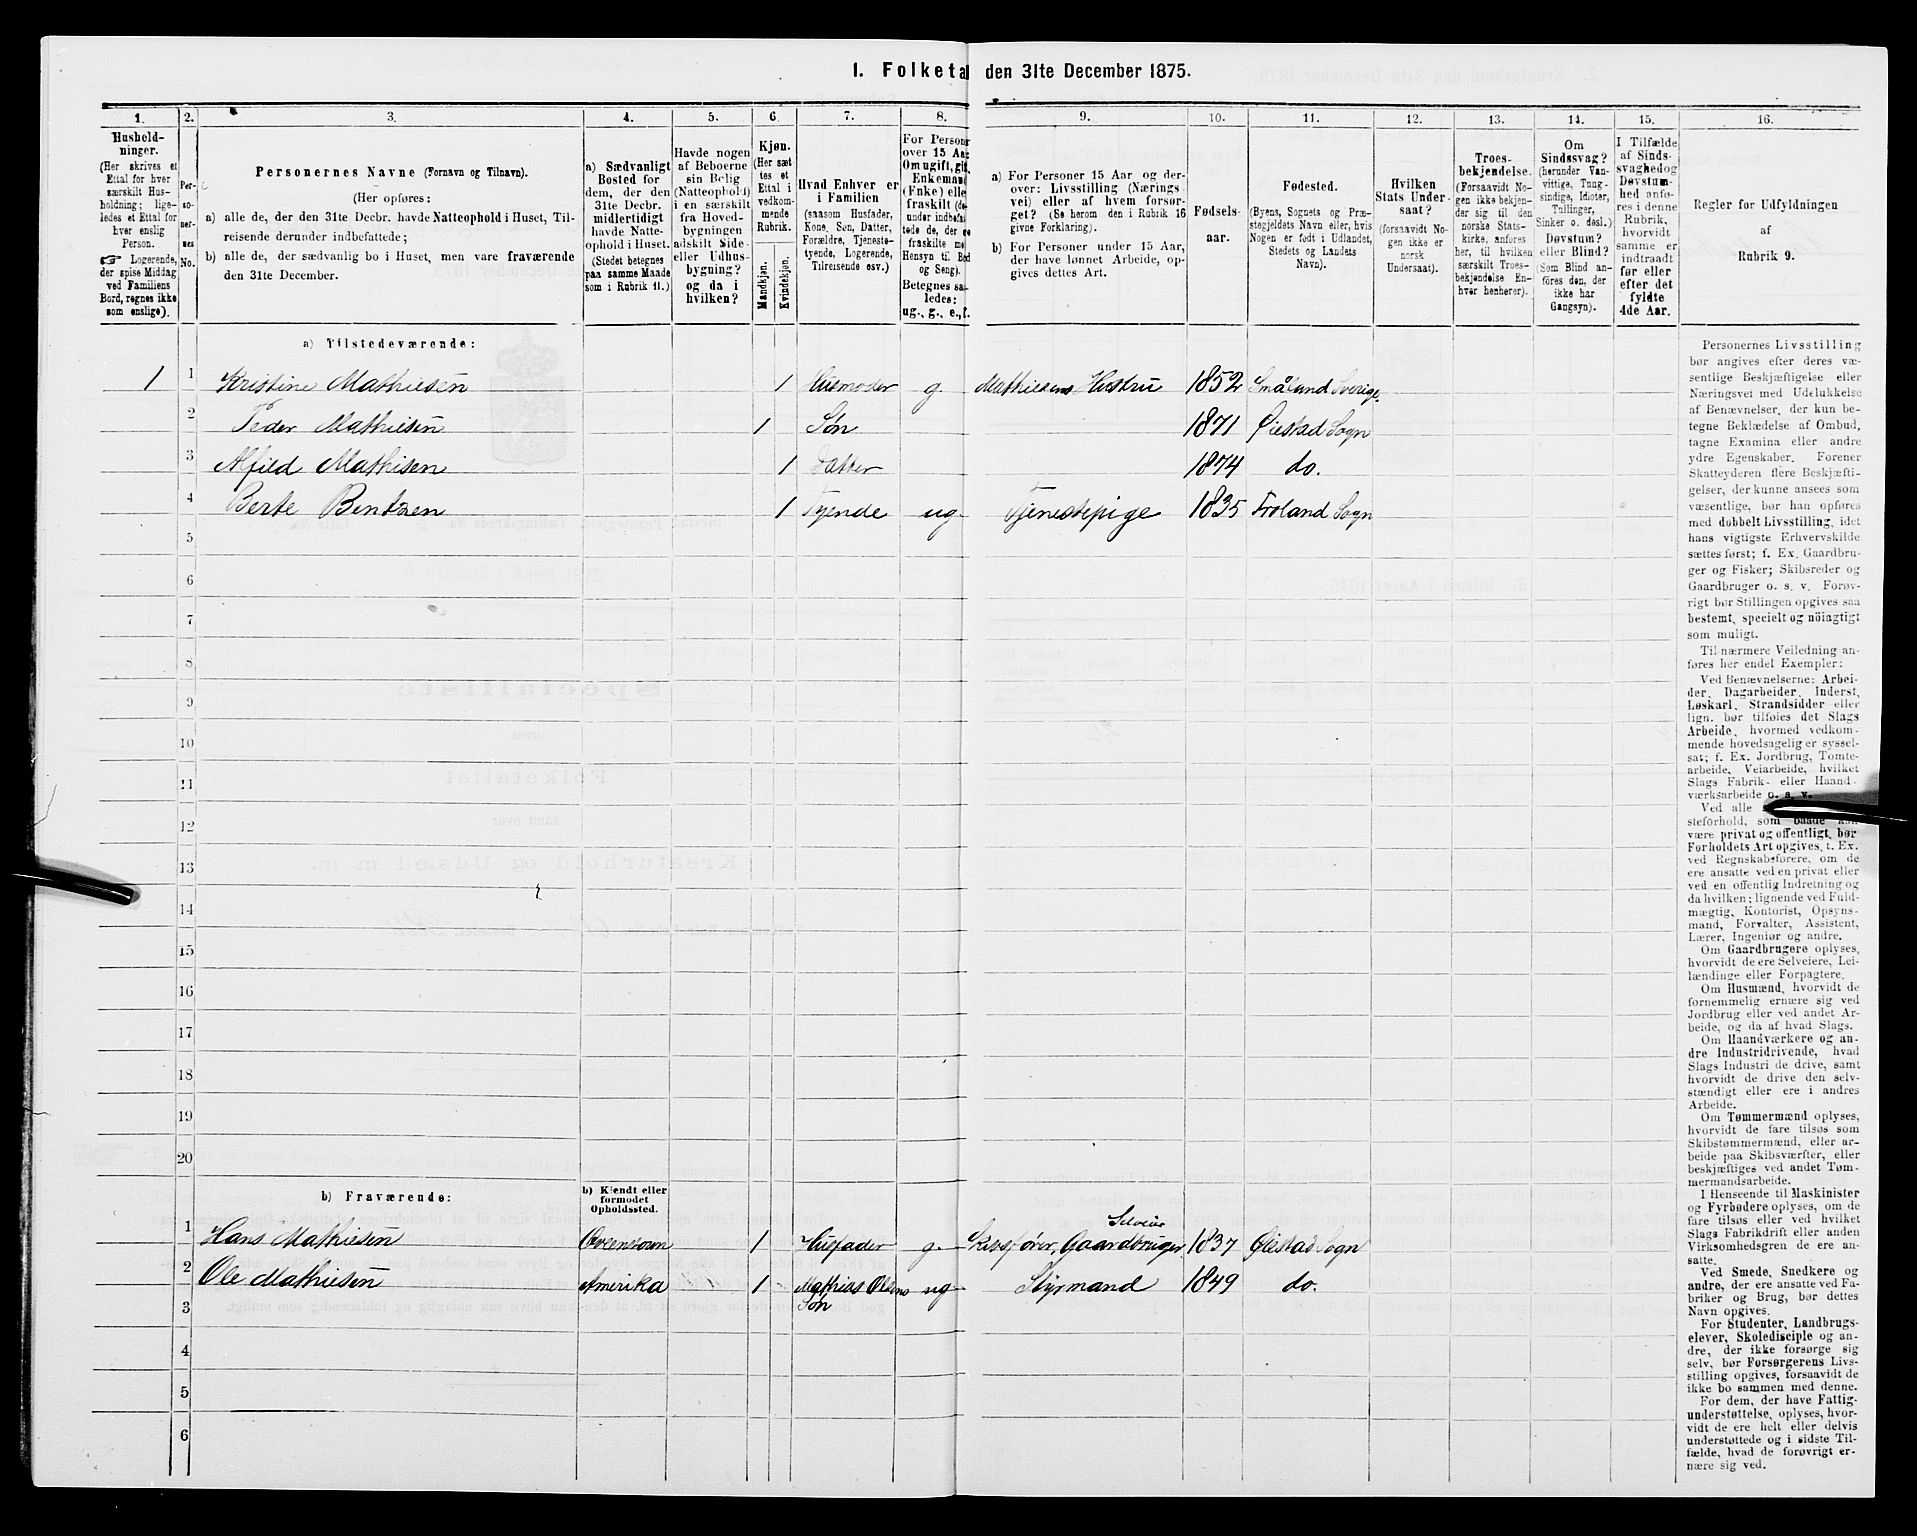 1. Folketa den 31te December 1875.
1. 2. 3. 4. 5. 6. 7. 8. 9. 10. 11. 12. 13. 14. 15. 16.
Hushold-
ninger.
(Her skrives et
Ettal for hver
særskilt Hus-
holdning; lige-
ledes et Ettal for
hver enslig
Person.
☞ Logerende,
der spise Middag
ved Familiens
Bord, regnes ikke
som enslige).
Per-
so-
ner-
nes
No.
Personernes Navne (Fornavn og Tilnavn).
(Her opføres:
a) alle de, der den 31te Decbr. havde Natteophold i Huset, Til-
reisende derunder indbefattede;
b) alle de, der sædvanlig bo i Huset, men vare fraværende
den 31te December.
a) Sædvanligt
Bosted for
dem, der den
31te Decbr.
midlertidigt
havde Natte-
ophold i Huset.
(Stedet betegnes
paa samme Maade
som i Rubrik 11.)
Havde nogen
af Beboerne
sin Bolig
(Natteophold)
i en særskilt
fra Hoved-
bygningen
adskilt Side-
eller Udhus-
bygning?
og da i
hvilken?
Kjøn.
(Her sæt
tes et
Ettal i
vedkom-
mende
Rubrik.
Mandkjøn.
Kvindekjøn.
Hvad Enhver er
i Familien
(saasom Husfader,
Kone, Søn, Datter,
Forældre, Tjeneste-
tyende, Logerende,
Tilreisende osv.)
For Person
over 15 Aa
Omugift, gif
Enkeman
(Enke) elle
fraskilt (de
under indbefa
tede de, der e
fraskilte me
Hensyn til Bo
og Seng).
Betegnes sa-
ledes:
ug., g., e., f.
a) For Personer 15 Aar og der-
over: Livsstilling (Nærings
vei) eller af hvem forsør-
get? (Se herom den i Rubrik 16
givne Forklaring).
b) For Personer under 15 Aar,
der have lønnet Arbeide, op-
gives dettes Art.
Fødsels-
aar.
Fødested.
(Byens, Sognets og Præ-
stegjeldets Navn eller, hvis
Nogen er født i Udlandet,
Stedets og Landets
Navn).
Hvilken
Stats Under-
saat?
(forsaavidt No-
gen ikke er
norsk
Undersaat).
Troes-
bekjendelse.
(Forsaavidt No-
gen ikke bekjen-
der sig til den
norske Stats-
kirke, anføres
her, til hvilken
særskilt Troes-
bekjendelse En-
hver henhører).
Om
Sindssvag?
(herunder Van-
vittige, Tung-
sindige, Idioter,
Tullinger,
Sinker o. desl.)
Døvstum?
eller Blind?
(Som Blind an-
føres den, der
ikke har
Gangsyn).
I Tilfælde
af Sinds-
svaghed og
Døvstum-
hed anfø-
res i denne
Rubrik,
hvorvidt
samme er
indtraadt
før eller
efter det
fyldte
4de Aar.
Regler for Udfyldningen
af
Rubrik 9.
a) Tilstedeværende:
1 1 Kristine Mathiesen 1 Husmoder g. Mathiesens Hustru 1852 Småland Sverige.
2 Peder Mathiesen 1 Søn 1871 Øiestad Sogn
3 Alfild Mathisen 1 Datter 1874 do.
4 Berte Bentsen 1 Tyende ug. Tjenestepige 1835 Froland Sogn
5
6
7
8
9
10
11
12
13
14
15
16
17
18
19
20
b) Fraværende:
b) Kjendt eller
formodet
Opholdssted.
Selveier
1 Hans Mathiesen 1 Husfader g. Skibsfører, Gaardbruger 1837 Øiestad Sogn
2 Ole Mathiesen Amerika 1 Mathias Olsens ug Styrmand 1849 do.
3 Søn
4
5
6
Personernes Livsstilling
bør angives efter deres væ-
sentlige Beskjæftigelse eller
Næringsvei med Udelukkelse
af Benævnelser, der kun be-
tegne Beklædelse af Ombud,
tagne Examina eller andre
ydre Egenskaber. Forener
Skatteyderen flere Beskjæfti-
gelser, der kunne ansees som
væsentlige, bør han opføres
med dobbelt Livsstilling, idet
hans vigtigste Erhvervskilde
sættes først; f. Ex. Gaardbru-
ger og Fisker; Skibsreder og
Gaardbruger o. s. v. Forøv-
rigt bør Stillingen opgives saa
bestemt, specielt og nøiagtigt
som muligt.
Til nærmere Veiledning an-
føres her endel Exempler:
Ved Benævnelserne: Arbei-
der, Dagarbeider, Inderst,
Løskarl, Strandsidder eller
lign. bør tilføies det Slags
Arbeide, hvormed vedkom-
mende hovedsagelig er syssel-
sat; f. Ex. Jordbrug, Tomte-
arbeide, Veiarbeide, hvilket
Slags Fabrik- eller Haand-
værksarbeide o. s. v.
Ved alle
steforhold, som baade kan
være privat og offentligt, bør
Forholdets Art opgives, t. Ex.
ved Regnskabsførere, om de
ere ansatte ved en privat eller
ved en offentlig Indretning og
da hvilken; lignende ved Fuld-
mægtig, Kontorist, Opsyns-
mand, Forvalter, Assistent,
Lærer, Ingeniør og andre.
Om Gaardbrugere oplyses,
hvorvidt de ere Selveiere, Lei-
lændinge eller Forpagtere.
Om Husmænd, hvorvidt de
fornemmelig ernære sig ved
Jordbrug eller ved andet Ar-
beide, og da af hvad Slags.
Om Haandværkere og an-
dre Industridrivende, hvad
Slags Industri de drive, samt
hvorvidt de drive den selv-
stændigt eller ere i andres
Arbeide.
Om Tømmermænd oplyses,
hvorvidt de fare tilsøs som
Skibstømmermænd, eller ar-
beide paa Skibsværfter, eller
beskjæftiges ved andet Tøm-
mermandsarbeide.
I Henseende til Maskinister
og Fyrbødere oplyses, om de
fare tilsøs eller ved hvilket
Slags Fabrikdrift eller anden
Virksomhedsgren de ere an-
satte.
Ved Smede, Snedkere og
andre, der ere ansatte ved Fa-
briker og Brug, bør dettes
Navn opgives.
For Studenter, Landbrugs-
elever, Skoledisciple og an-
dre, der ikke forsørge sig
selv, bør Forsørgerens Livs-
stilling opgives, forsaavidt de
ikke bo sammen med denne.
For dem, der have Fattig-
understøttelse, oplyses, hvor-
vidt de ere helt eller delvis
understøttede og i sidste Til-
fælde, hvad de forøvrigt er-
nære sig ved.